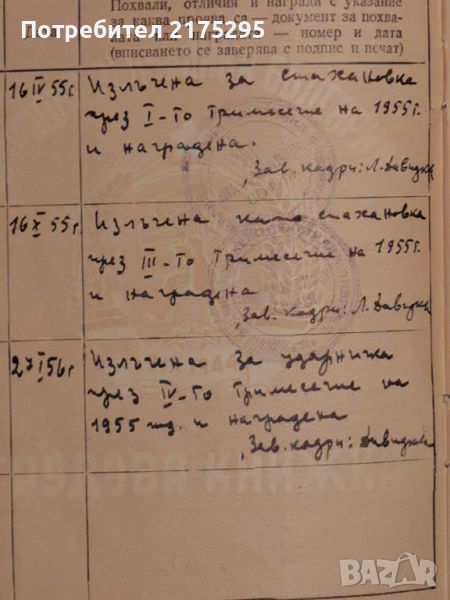 Потребител 2175295
Похвали, отличия и награди с указание
за каква проява са — документ за похва-
лата или наградата — номер и дата
(вписването се заверява с подпис и печат)
16 IV 55 г.
Излъчена за стахановка
през I-то тримесечие на 1955 г.
и наградена.
Зав. кадри: Л. Давидка
16 X 55 г.
Излъчена като стахановка
през III-то тримесечие на 1955 г.
и наградена
Зав. кадри: Л. Давидка
27 I 56 г.
Излъчена за ударничка
през IV-то тримесечие на
1955 год. и наградена
Зав. кадри: Давидка
BAZAR